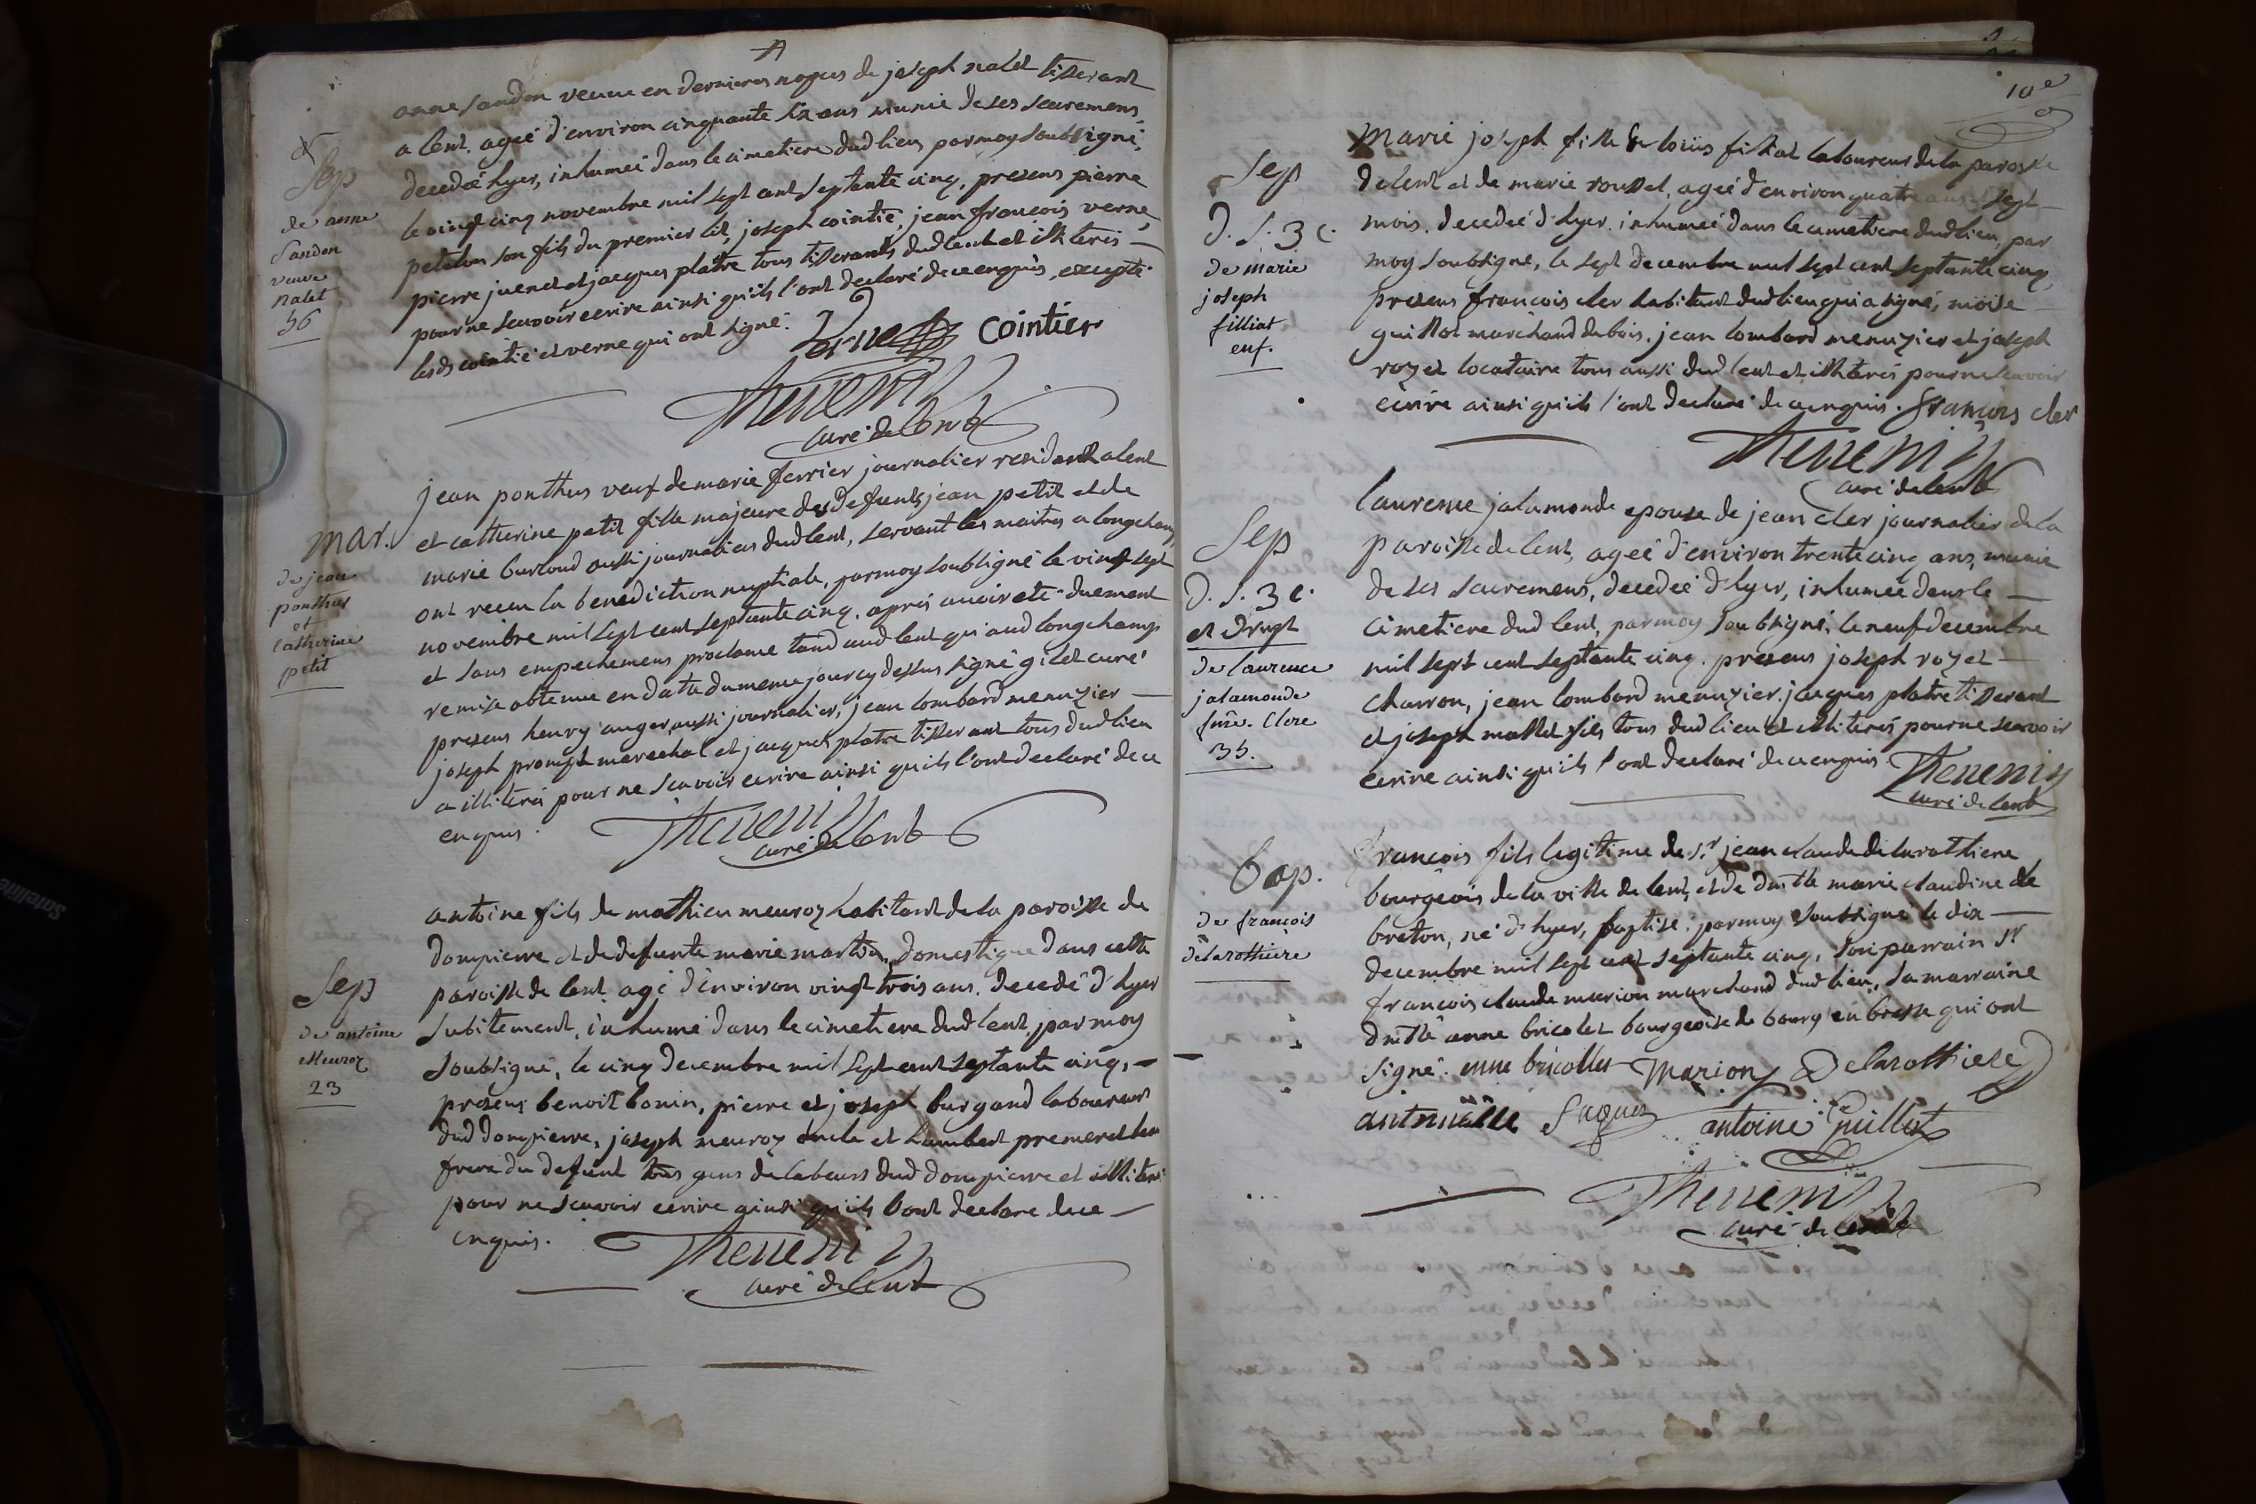 Sep
de anne
Sandon
veuve
nalet
56
anne Sandon veuve en dernieres nopces de joseph nalet tisserant
a lent, ageé d'environ cinquante six ans munie de ses sacremens,
decedeé hyer, inhumeé dans le cimetiere dud lieu par moy soubsigné,
le vingt cinq novembre mil sept cent septante cinq, presens pierre
son fils du premier lit, joseph cointié, jean francois verne,
pierre juenet et jacques platre tous tisserants dud lent et illiteris
pour ne scavoir ecrire ainsi qu'ils l'ont declaré de ce enquis, excepté
lesds cointié et verne qui ont signé.
Verne Cointier
Thevenin
curé de lent
mar.
de jean
ponthus
et
catherine
petit
jean ponthus veuf de marie ferrier journalier residant a lent
et catherine petit fille majeure des defunts jean petit et de
marie burloud aussi journaliers dud lent, servant les maitres a longchamp
ont receu la benediction nuptiale, par moy soubsigné le vingt sept
novembre mil sept cent septante cinq, aprés avoir eté duement
et sans empechemens proclamé tand aud lent qu'aud longchamp
remise obtenue en datte du meme jour cy dessus signé gilet curé
presens henry auger aussi journalier, jean lombard menuzier
joseph marechal et jacques platre tisserant tous dud lieu
a illiteris pour ne scavoir ecrire ainsi qu'ils l'ont declaré de ce
enquis.
Thevenin
curé de lent
Sep
de antoine
Meuroz
23
antoine fils de mathieu meuroz habitant de la paroisse de
dompierre et de defunte marie martin, domestique dans cette
paroisse de lent agé d'environ vingt trois ans, decedé d'hyer
subitement, inhumé dans le cimetiere dud lent par moy
soubsigné, le cinq decembre mil sept cent septante cinq,
presens benoit bonin, pierre et joseph burgand laboureurs
dud dompierre, joseph meuroz oncle et humbert
frere du defunt tous gens de labeurs dud dompierre et illiteris
pour ne scavoir ecrire ainsi qu'ils l'ont declaré de ce
enquis.
Thevenin
curé de lent
10e
Sep
D. S. 3 c.
de marie
joseph
filliat
enf.
Marie joseph fille de loüis filliat laboureur de la paroisse
de lent et de marie roussel, ageé d'environ quatre ans sept
mois, decedeé d'hyer, inhumeé dans le cimetiere dud lieu, par
moy soubsigné, le sept decembre mil sept cent septante cinq,
presens francois cler habitant dud lieu qui a signé, moise
guillot marchand de bois, jean lombard menuzier et joseph
rozet locataire tous aussi dud lent et illiteris pour ne scavoir
ecrire ainsi qu'ils l'ont declaré de ce enquis. francois cler
Thevenin
curé de lent
Sep
D. S. 3 c.
et drngt
de laurence
jalamonde
fme. Clere
35.
laurence jalamonde epouse de jean cler journalier de la
paroisse de lent, ageé d'environ trente cinq ans, munie
de ses sacremens, decedeé d'hyer, inhumeé dans le
cimetiere dud lent, par moy soubsigné, le neuf decembre
mil sept cent septante cinq, presens joseph rozet
charron, jean lombard menuzier, jacques platre tisserant
et joseph mallet fils tous dud lieu et illiteris pour ne scavoir
ecrire ainsi qu'ils l'ont declaré de ce enquis.
Thevenin
curé de lent
bap.
de françois
delarothiere
françois fils legitime de sr jean claude delarothiere
bourgeois de la ville de lent, et de dmlle marie claudine de
breton, né d'hyer, baptisé par moy soubsigné le dix
decembre mil sept cent septante cinq, son parrain sr
francois claude marion marchand dud lieu, sa marraine
dmlle anne bricolet bourgeoise de bourg en bresse qui ont
signé. anne bricollet Marion Delarothiere
antoine Guillot
Thevenin
curé de lent